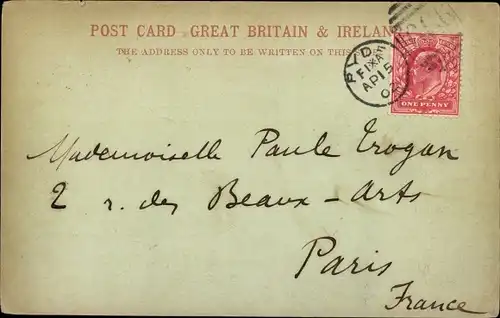 POST CARD GREAT BRITAIN & IRELAN
THE ADDRESS ONLY TO BE WRITTEN ON THIS
RYDE
AP 15
02
ONE PENNY
Mademoiselle Paule Trogan
2 r. des Beaux-Arts
Paris
France